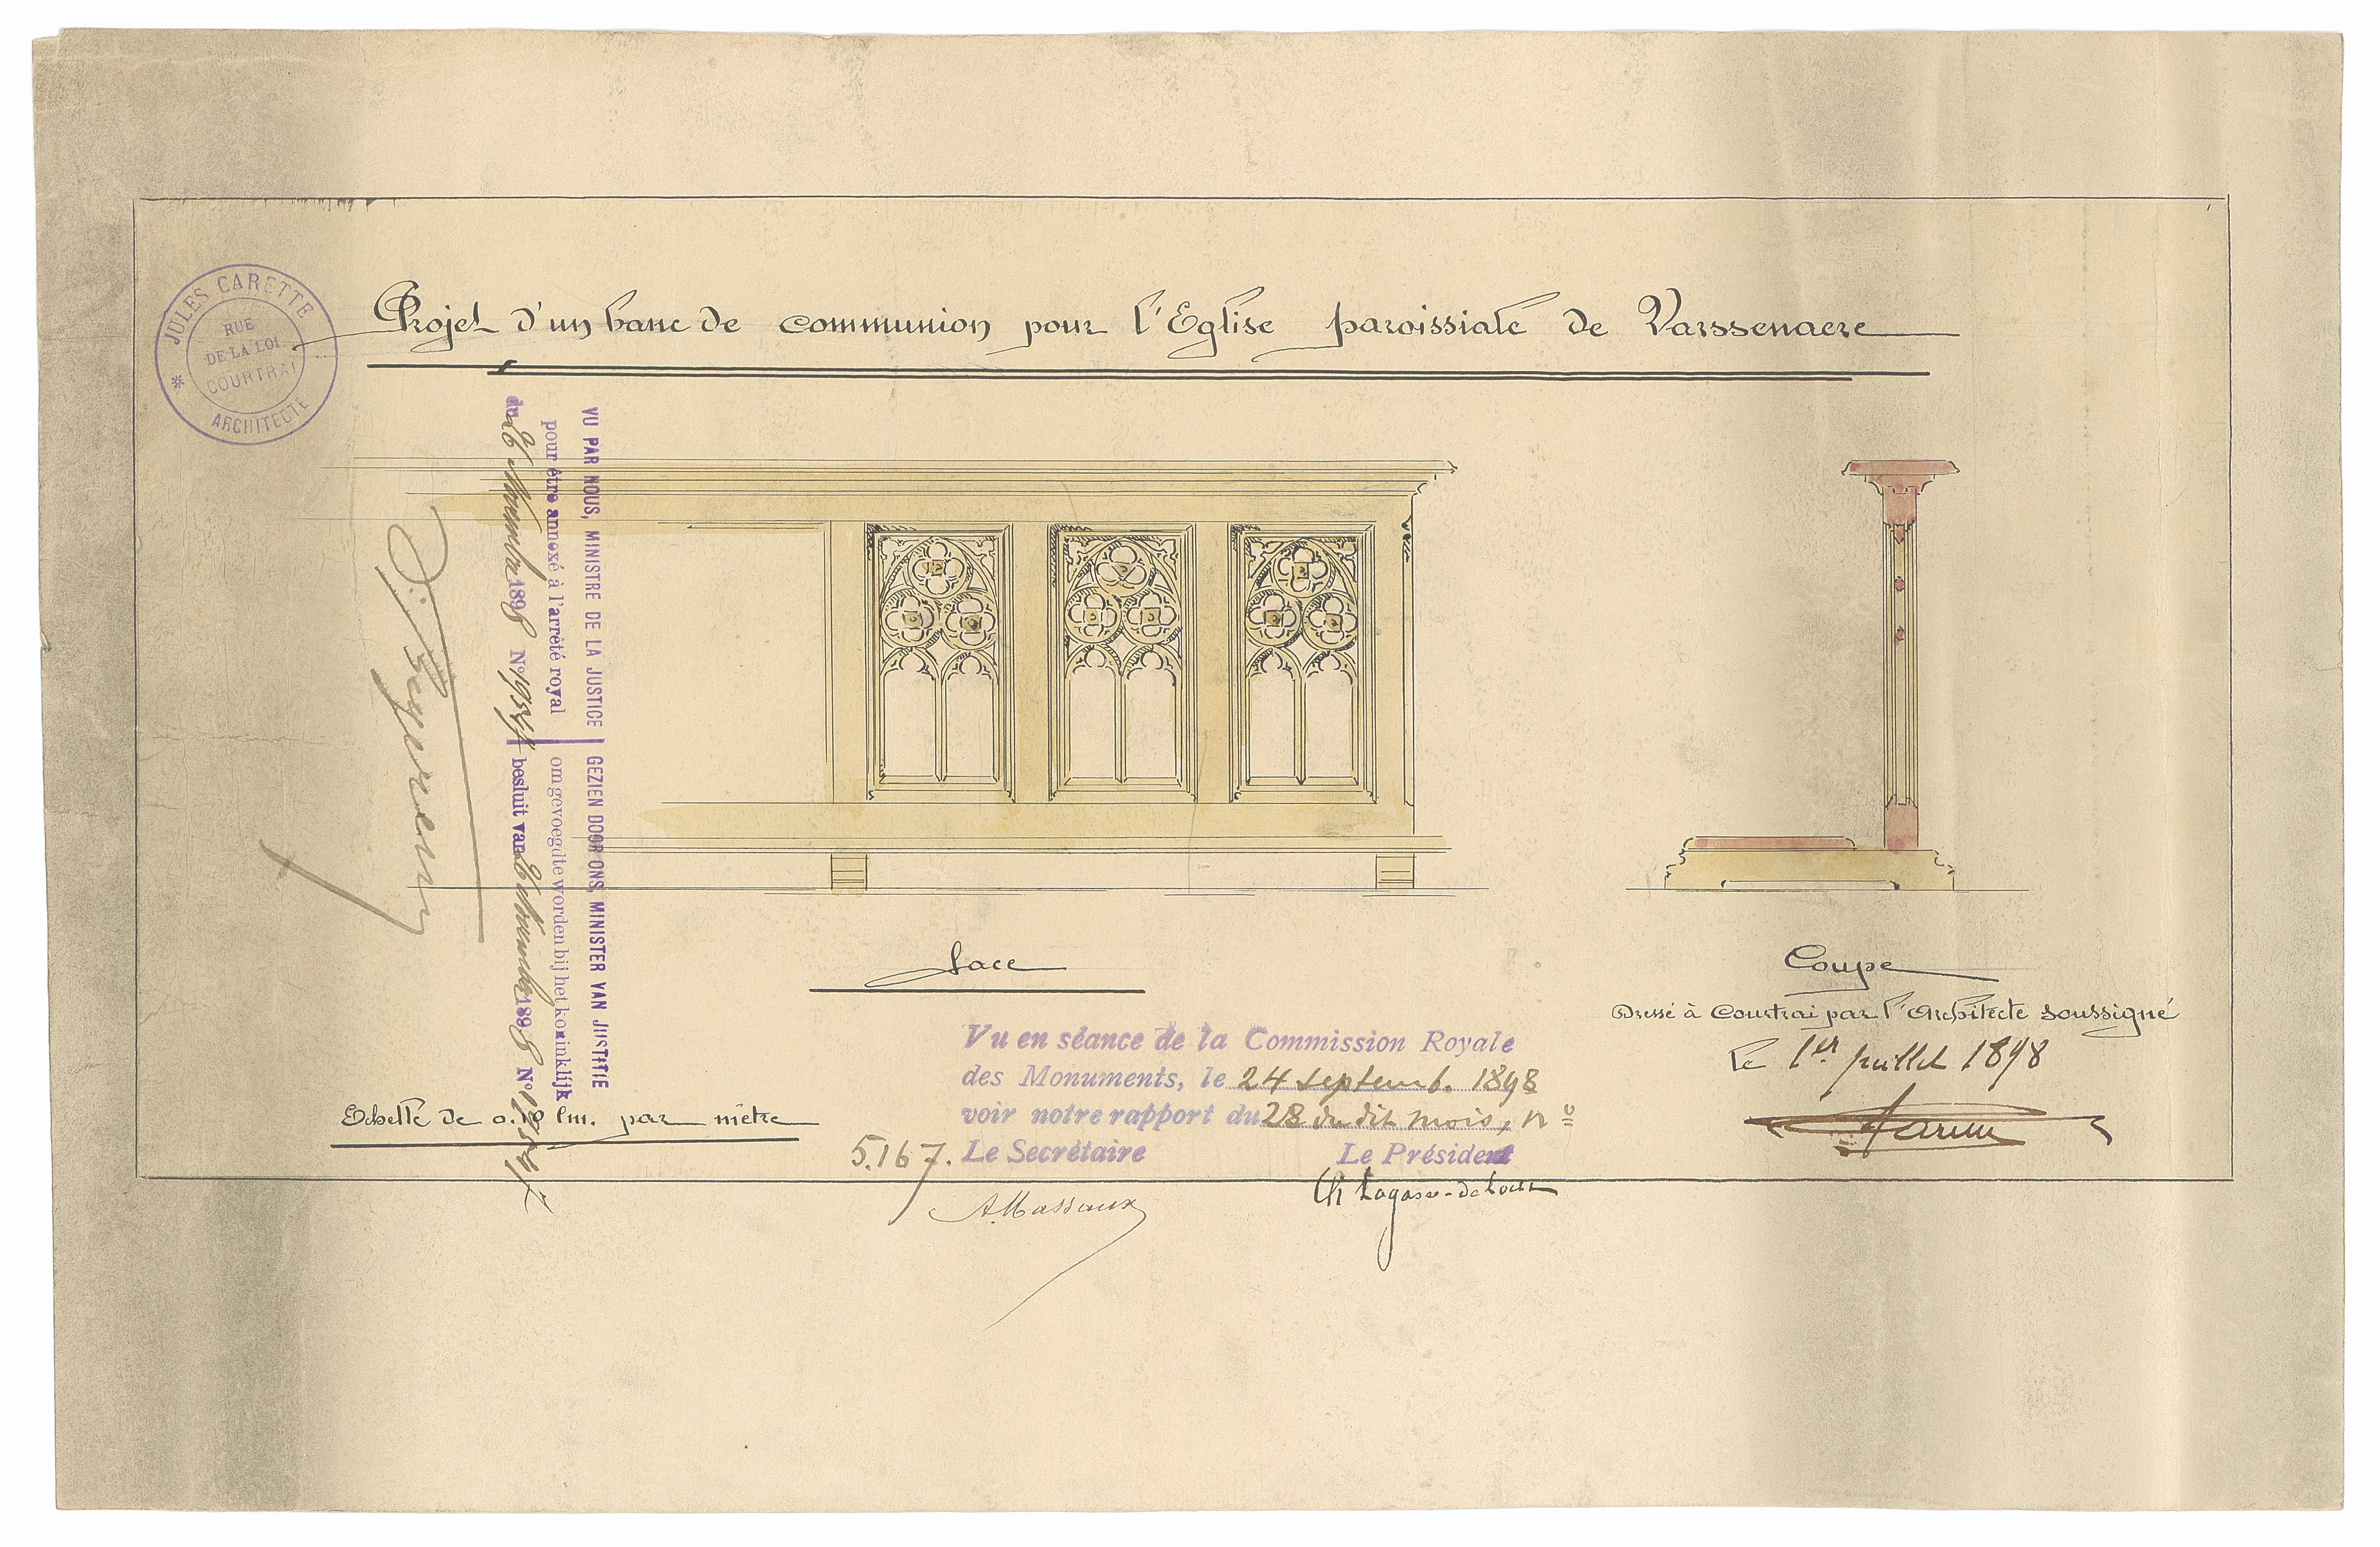 JULES CARETTE
RUE
DE LA LOI
COURTRAI
* ARCHITECTE
Projet d'un banc de communion pour l'Eglise paroissiale de Varssenaere
VU PAR NOUS, MINISTRE DE LA JUSTICE | GEZIEN DOOR ONS, MINISTER VAN JISTITIE
pour être annexé à l'arrêté royal | om gevoegd te worden bij het koninklijk
du 26 Novembre 1898 N° | besluit van 26 Novembre 1898 N°
Face
Coupe
Dressé à Courtrai par l'Architecte soussigné
le 1er juillet 1898
Vu en séance de la Commission Royale
des Monuments, le 24 septemb. 1898
voir notre rapport du 28 du dit mois, n°
5.167. Le Secrétaire Le Président
A. Massaux Ch Lagasse-de Locht
Echelle de 0. par mètre